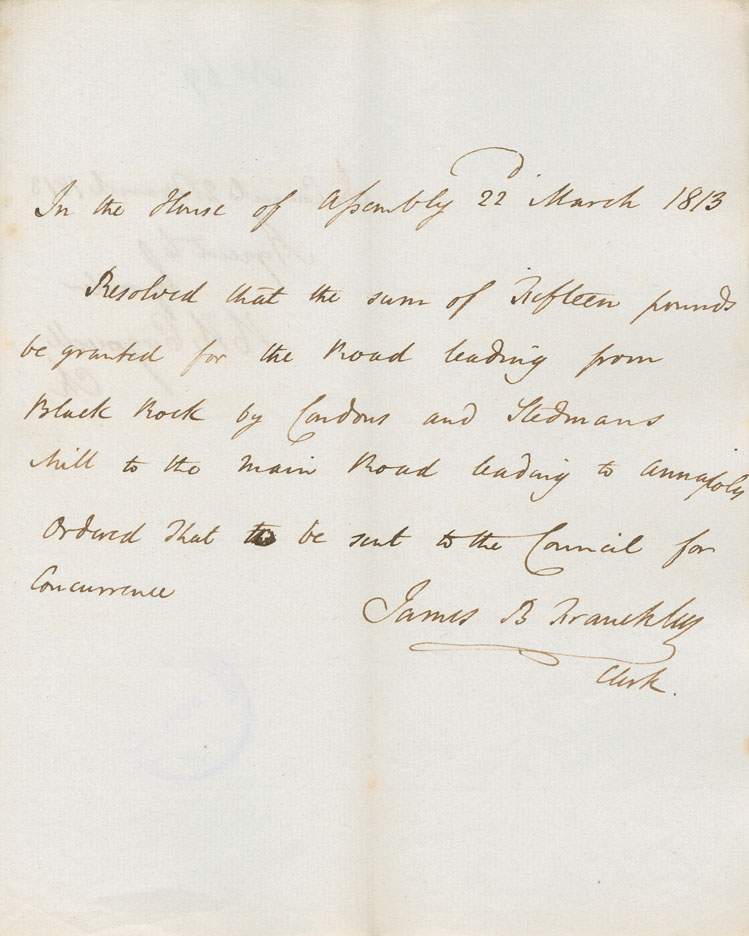 In the House of Assembly 22d March 1813
Resolved that the sum of Fifteen pounds
be granted for the Road leading from
Black Rock by Condons and Stedmans
Mill to the main Road leading to Annapolis
Ordered that to be sent to the Council for
Concurrence
James B Franckley
Clerk.